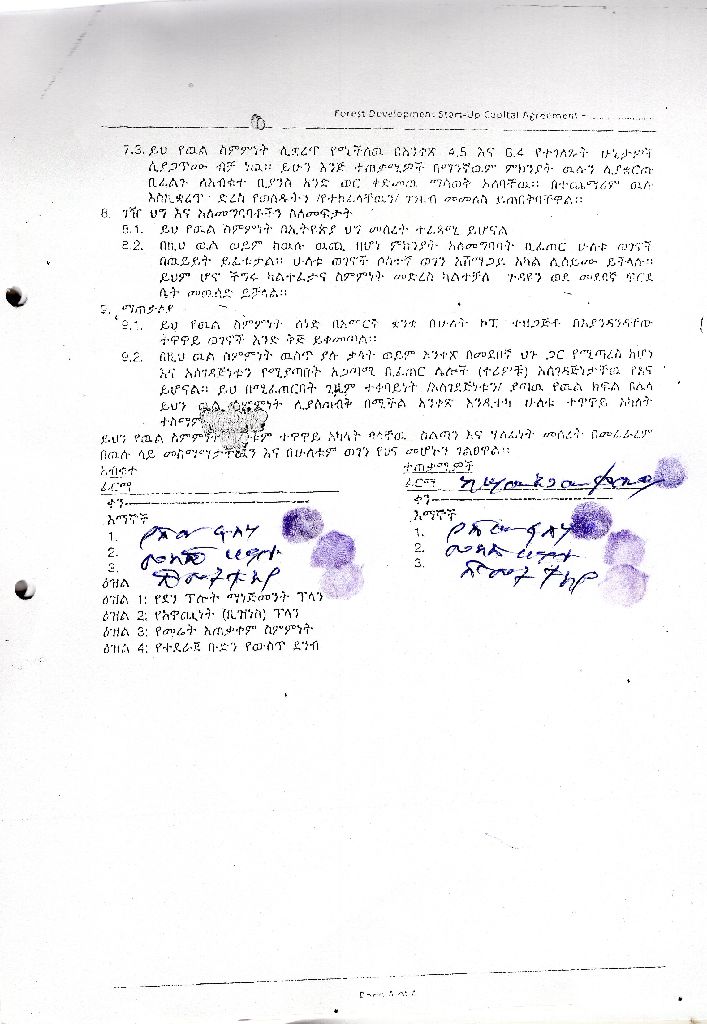 Forest Development Start-Up Capital Agreement -
7.3. ይህ የዉል ስምምነት ሊቋረጥ የሚችለዉ በአንቀጽ 4.5 እና 6.4 የተገለጹት ሁኔታዎች
ሲያጋጥሙ ብቻ ነዉ። ይሁን እንጅ ተጠቃሚዎች በማንኛዉም ምክንያት ዉሉን ሊያቋርጡ
ቢፈልጉ ለአብቁተ ቢያንስ አንድ ወር ቀድመዉ ማሳወቅ አለባቸዉ። በተጨማሪም ዉሉ
እስኪቋረጥ ድረስ የወሰዱትን /የተከፈላቸዉን/ ገንዘብ መመለስ ይጠበቅባቸዋል።
8. ገዥ ህግ እና አለመግባባቶችን ስለመፍታት
8.1. ይህ የዉል ስምምነት በኢትዮጵያ ህግ መሰረት ተፈጻሚ ይሆናል
8.2. በዚህ ዉል ወይም ከዉሉ ዉጪ በሆነ ምክንያት አለመግባባት ቢፈጠር ሁለቱ ወገኖች
በዉይይት ይፈቱታል። ሁለቱ ወገኖች ሶስተኛ ወገን አሸማጋይ አካል ሊሰይሙ ይችላሉ።
ይህም ሆኖ ችግሩ ካልተፈታና ስምምነት መድረስ ካልተቻለ ጉዳዩን ወደ መደበኛ ፍርድ
ቤት መዉሰድ ይቻላል።
9. ማጠቃለያ
9.1. ይህ የዉል ስምምነት ሰነድ በአማርኛ ቋንቋ በሁለት ኮፒ ተዘጋጅቶ በእያንዳንዳቸው
ተዋዋይ ወገኖች አንድ ቅጅ ይቀመጣል።
9.2. በዚህ ዉል ስምምነት ዉስጥ ያሉ ቃላት ወይም አንቀጽ በመደበኛ ህጉ ጋር የሚጣረስ ከሆነ
እና አስገዳጅነቱን የሚያጣበት አጋጣሚ ቢፈጠር ሌሎች (ተሪምቹ) አስገዳጅነታቸዉ የጸና
ይሆናል። ይህ በሚፈጠርበት ጊዜም ተቀባይነት /አስገዳጅነቱን/ ያጣዉ የዉል ክፍል በሌላ
ይህን ዉል ስምምነት ሊያስጠብቅ በሚችል አንቀጽ እንዲተካ ሁለቱ ተዋዋይ አካላት
ተስማም
ይህን የዉል ስምምነት ተዋዋይ አካላት ባላቸዉ ስልጣን እና ሃላፊነት መሰረት በመፈራረም
በዉሉ ላይ መስማማታቸዉን እና በሁለቱም ወገን የጸና መሆኑን ገልፀዋል።
አብቁተ ተጠቃሚዎች
ፊርማ ፊርማ
ቀን ቀን
እማኞች እማኞች
1. 1.
2. 2.
3. 3.
ዕዝል
ዕዝል 1: የደን ፕሎት ማኔጅመንት ፕላን
ዕዝል 2: የአዋጪነት (ቢዝነስ) ፕላን
ዕዝል 3: የመሬት አጠቃቀም ስምምነት
ዕዝል 4: የተደራጀ ቡድን የውስጥ ደንብ